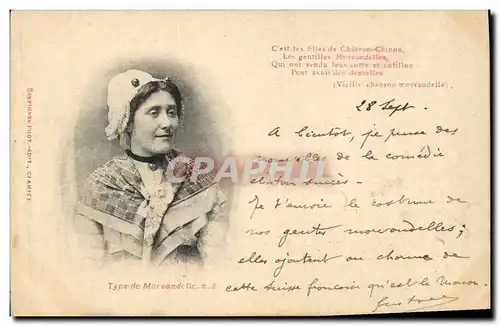 C'est les filles de Château-Chinon,
Les gentilles Morvandelles,
Qui ont vendu leur cotte et cotillon
Pour avoir des dentelles
(Vieille chanson morvandelle).
28 Sept.
A bientôt, je pense des
nouvelles de la comédie
et ton succès.
Je t'envoie le costume de
nos gentes morvandelles;
elles ajoutent au charme de
cette Suisse française qu'est le Morvan.
Gustave
CARPS
Type de Morvandelle
CLAMECY